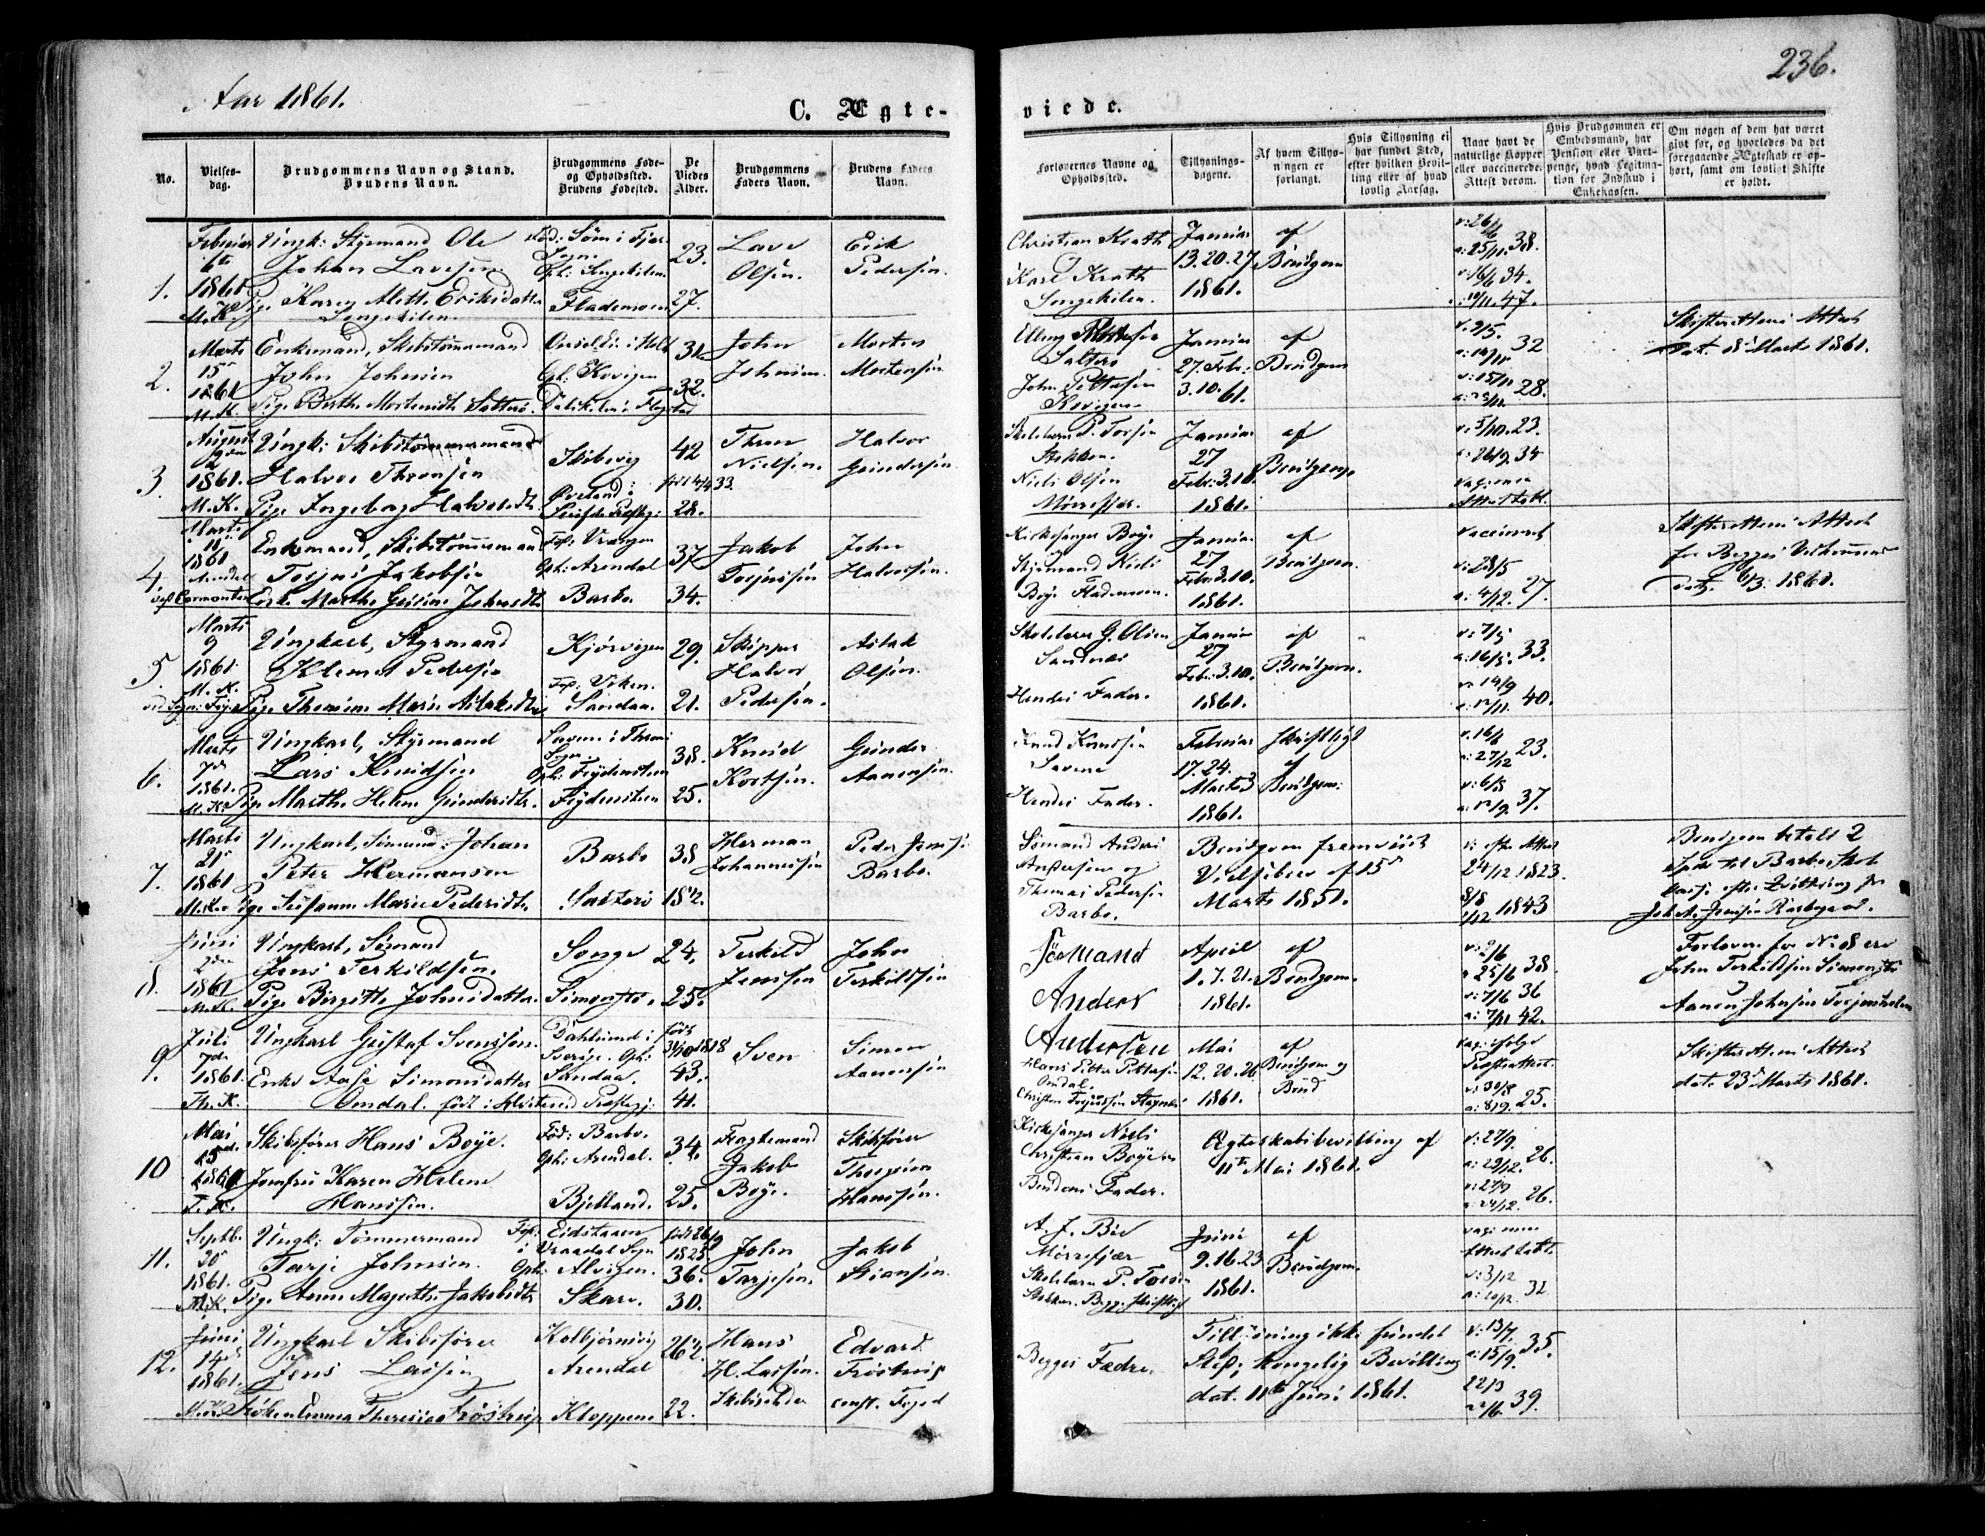 Aar 1861.
236.
C. Ægte-
viede.
No.
Vielses-
dag.
Brudgommens Navn og Stand.
Brudens Navn.
Brudgommens Føde-
og Opholdssted.
Brudens Fødested.
De
Viedes
Alder.
Brudgommens
Faders Navn.
Brudens Faders
Navn.
Forlovernes Navne og
Opholdssted.
Tillysnings-
dagene.
Af hvem Tillys-
ningen er
forlangt.
Hvis Tillysning ei
har fundet Sted,
efter hvilken Bevil-
ling eller af hvad
lovlig Aarsag.
Naar havt de
naturlige Kopper
eller vaccinerede.
Attest derom.
Hvis Brudgommen er
Embedsmand, har
Pension eller Vart-
penge, hvad Legitima-
tion for Indskud i
Enkekassen.
Om nogen af dem har været
gift før, og hvorledes da det
foregaaende Ægteskab er op-
hørt, samt om lovligt Skifte
er holdt.
1.
Februar
6te
1861
M.K.
Ungk: Styrmand Ole
Johan Lavesen
Pige Karen Mett. Eriksdatter
Songekilen.
Fød: Søm i Fjære
Sogn.
Oph: Songekilen
Flademoen
23.
27.
Lave
Olsen.
Erik
Pedersen.
Christian Krath
Karl Krath
Songekilen.
Januar
13. 20. 27
1861.
af
Brudgom
v: 26/6
a: 25/11 38.
v: 16/6 34.
a: 10/11 47.
2.
Marts
15
1861
M.K.
Enkemand, Skibstømmermand
John Johnsen
Pige Berthe Mortensdtr Salterø.
i Holt
Oph: Kovigen
31
32.
John
Johnsen.
Morten
Mortensen
Salterø
John
Kovigen
Januar
27. Febr.
3. 10. 61.
af
Brudgom
v. 9/5.
a: 14/11 32
v: 15/11
a: 25/11. 28.
Skifterettens Attest
dat. 8de Marts 1861.
3.
August
2den
1861.
M.K.
Ungk: Skibstømmermand
Halvor Thronsen
Pige Ingeborg Halvorsdtr
Skibevig
Øveland i
42
28.
Thron
Nielsen.
Halvor
Gundersen
Skolelærer P. Torsen
Stokken.
Niels Olsen
Mørrefjær.
Januar
27
Febr. 3. 10.
1861.
af
Brudgom
v: 5/10. 23.
a: 26/9. 34
4.
Marts
11
1861
Arendal
Enkemand, Skibstømmermand
Torjus Jakobsen
Enke Marthe Gurine Johnsdtr
Fød: Vrengen
Oph: Arendal
Barbo
37
34.
Jakob
Torjussen
John
Halvorsen.
Kirkesanger Boye
Styrmand Niels
Boye Flademoen.
Januar
27
Febr. 3. 10.
1861.
af
Brudgom.
vaccineret
v: 28/5
a: 4/12. 27.
Skifterettens Attest
for Begges Vedkommende
dat. 6/3. 1861.
5
Marts
9
1861.
M.K.
Ungkarl, Styrmand
Klemet Pedersen
Pige Thomine Marie Aslaksdtr
Kjørvigen
Fød. Viken.
Sandaa.
29.
21.
Skipper
Halvor
Pedersen.
Aslak
Olsen.
Skolelærer G. Olsen
Sandnæs
Hendes Fader.
Januar
27
Febr. 3. 10.
1861.
af
Brudgom.
v: 7/5
a: 16/5. 33.
v: 14/9
a: 12/11. 40.
6.
Marts
7de
1861.
M.K.
Ungkarl, Styrmand
Lars Knudsen
Pige Marthe Helene Gundersdtr.
Savene i Thromø
Sogn
Oph: Frydensteen
Frydensteen
38.
25.
Knud
Kortsen.
Gunder
Aanensen.
Knud Knudsen
Savene
Hendes Fader.
Februar
17. 24.
Marts 3
1861.
skriftligt
af
Brudgom:
v. 16/6
a: 27/12 23.
v: 6/8
a: 12/9. 37.
7.
Marts
21
1861
M.K.
Ungkarl, Sømand: Johan
Peter Hermansen
Pige Susanne Marie Pedersdtr.
Barbo
Salterø
38
18 1/2.
Herman
Johannesen
Peder Jensen
Barbo.
Sømand Anders
Andersen og
Thomas Pedersen
Barbo.
Brudgom fremviist
Vielsesbrev af 15de
Marts 1851.
v: efter Attest
24/12 1823.
8/8
1/12 1843
Brudgom betalt 2
Spd til Barbo Skole-
kasse efter Qvittering fra
8.
Juni
2den
1861
M.K.
Ungkarl, Sømand
Jens Terkildsen.
Pige Birgitte Johnsdatter.
Songe
Simonstø.
24.
25.
Terkild
Jenssen
John
Terkildsen
Sømand
Anders
Andersen
April
1. 7. 21.
1861.
af
Brudgom.
v: 2/6
a 25/6 38.
v: 7/6 36
a: 7/11 42.
Forlovere for No 8 ere
John Terkildsen Simonstø
Aanen Johnsen Torjenholm
9.
Juli
7de
1861.
Th. K.
Ungkarl Gustaf Svensson.
Enke Aase Simonsdatter
Omdal. født i
Dahlsund i
Sverige. Oph:
Sandaa.
født
31/10 1818
43.
41.
Sven
Simon
Aanensen
Hans Petter Pettersen
Omdal.
Christen Torjussen
Mai
12. 20. 26
1861.
af
Brudgom og
Brud
vac: ifølge
Præsteattest.
v: 30/8
a: 8/9. 25.
Skifterettens Attest
dat. 23de Marts 1861.
10
Mai
15
1861
T. K.
Skibsfører Hans Boye.
Jomfru Karen Helene
Hanssen.
Fød: Barbo.
Oph: Arendal.
Bjelland.
34.
25.
Fragtemand
Jakob
Boye.
Skibsfører
Hanssen.
Kirkesanger Niels
Christian Boyesen
Brudens Fader.
Ægteskabsbevilling af
11te Mai 1861.
v: 27/9
a: 29/12. 26.
v: 27/9
a: 24/12. 26.
11.
Septb.
20
1861.
M.K.
Ungk: Tømmermand
Tarje Johnsen.
Pige Anne Magrethe Jakobsdtr
Fød: Eidstaaen
i Vraadal Sogn
Oph: Alvigen.
Skare.
født 26/9
1825
36.
30.
John
Tarjesen.
Jakob
Stiansen.
A. J. Bie
Mørrefjær
Skolelærer P. Torsen
Stokken. Begge skriftligt
Juni
9. 16. 23
1861.
af
Brudgom.
v: 3/12
a: 20/12. 32
12.
Juni
14de
1861.
M.K.
Ungkarl Skibsfører
Jens Lassen
Frøken Emma Theresia Frøstrup
Kolbjørnsvig
Arendal
Kloppene
26 1/2.
22.
Hans
H. Lassen.
Skibsreder
Edvard
Frøstrup
const. Foged
Begges Fædre.
Tillysning ikke fundet
Sted; kongelig Bevilling
dat. 11te Juni 1861.
v: 13/7.
a: 15/9. 35.
22/3
22/6. 39.